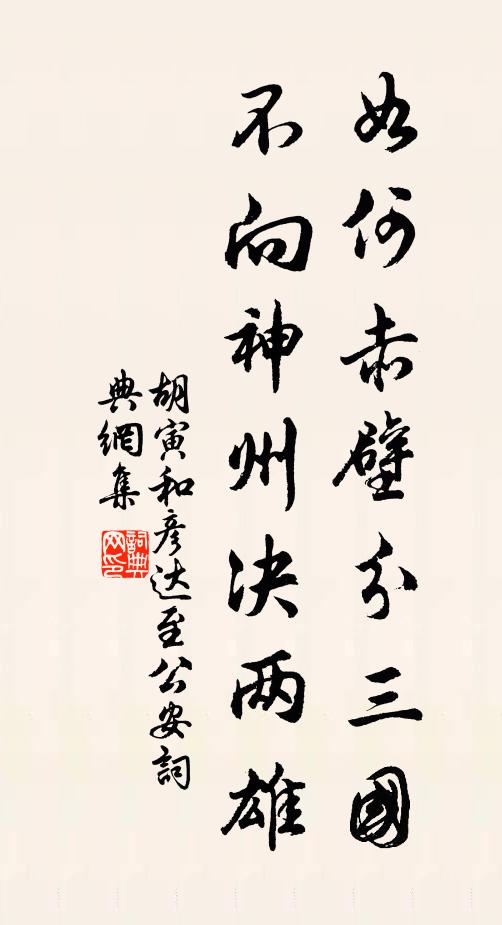 如何赤壁分三國
不向神州决两雄
胡寅和彦达至公安詞
典網集
詞典网印